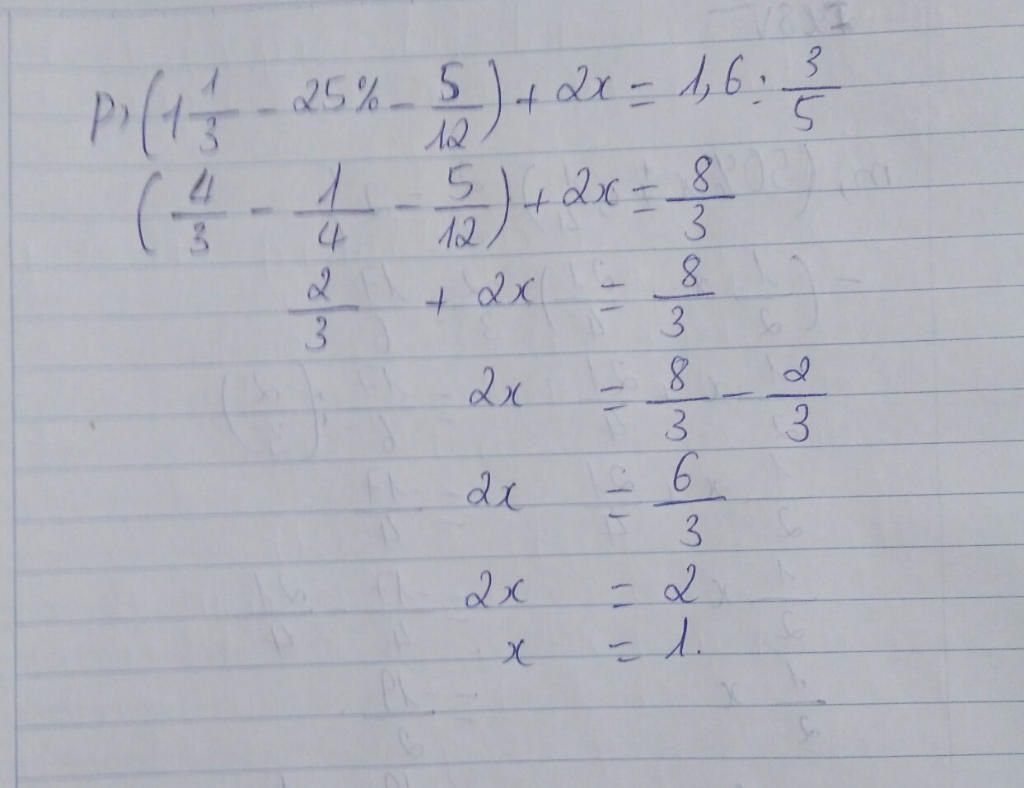 p, (1 1/3 - 25% - 5/12) + 2x = 1,6 : 3/5
(4/3 - 1/4 - 5/12) + 2x = 8/3
2/3 + 2x = 8/3
2x = 8/3 - 2/3
2x = 6/3
2x = 2
x = 1.